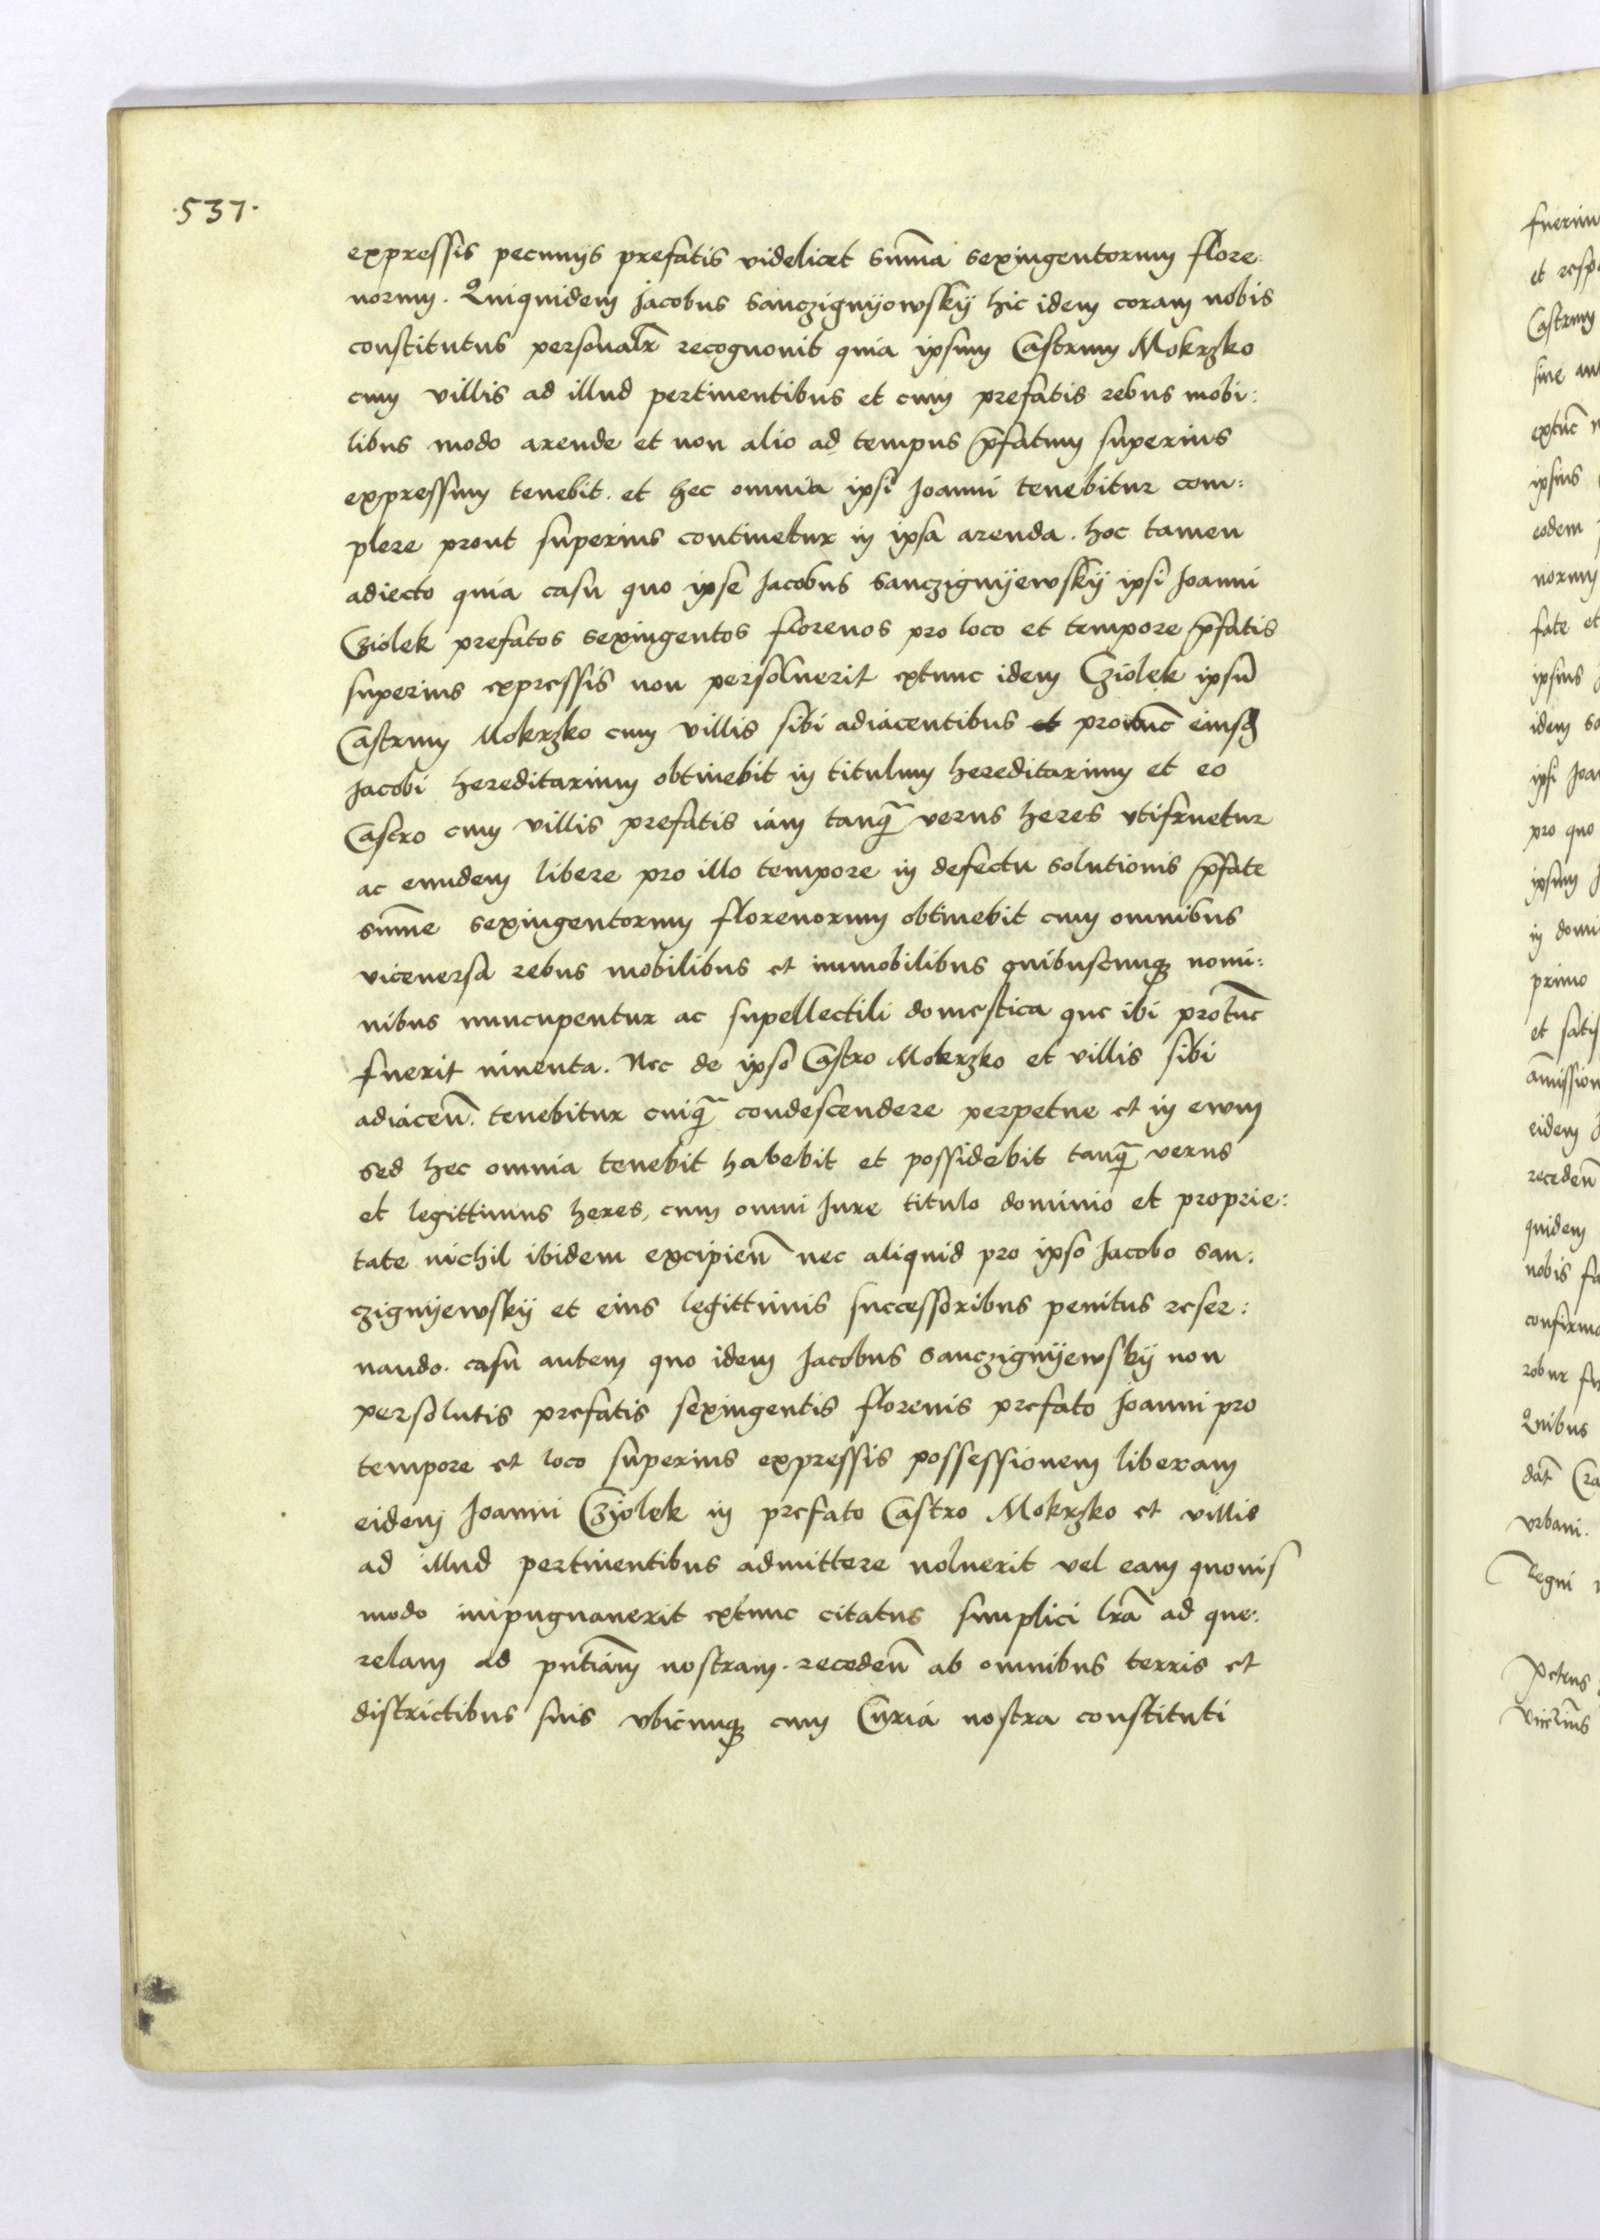 .537.
expressis pecunijs prefatis videlicet su̅ma sexingentorum flore:
norum. Quiquidem Jacobus Sanczignyowskij hic idem coram nobis
constitutus personalr̅ recognouit quia ipsum Castrum Mokrzko
cum villis ad illud pertinentibus et cum prefatis rebus mobi:
libus modo arende et non alio ad tempus p̅fatum superius
expressum tenebit. et hec omnia ipsi Joanni tenebitur com:
plere prout superius continetur in ipsa arenda. hoc tamen
adiecto quia casu quo ipse Jacobus Sanczignyewskij ipsi Joanni
Cziolek prefatos sexingentos florenos pro loco et tempore p̅fatis
superius expressis non persoluerit extunc idem Cziolek ipsu̅
Castrum Mokrzko cum villis sibi adiacentibus et protuc̅ eiusd
Jacobi hereditarium obtinebit in titulum hereditarium et eo
Castro cum villis prefatis iam tanq̅ verus heres vtifruetur
ac eundem libere pro illo tempore in defectu solutionis p̅fate
su̅me sexingentorum florenorum obtinebit cum omnibus
viceuersa rebus mobilibus et immobilibus quibuscunq nomi:
nibus nuncupentur ac supellectili domestica que ibi protuc̅
fuerit inuenta. Nec de ipso Castro Mokrzko et villis sibi
adiacen̅. tenebitur cuiq̅ condescendere perpetue et in ewm
sed hec omnia tenebit habebit et possidebit tanq̅ verus
et legittimus heres, cum omni Jure titulo dominio et proprie:
tate nichil ibidem excipien̅ nec aliquid pro ipso Jacobo San:
czignyewskij et eius legittimis successoribus penitus reser:
uando. casu autem quo idem Jacobus Sanczignyewskij non
persolutis prefatis sexingentis florenis prefato Joanni pro
tempore et loco superius expressis possessionem liberam
eidem Joanni Czyolek in prefato Castro Mokrzko et villis
ad illud pertinentibus admittere noluerit vel eam quouis
modo inpugnauerit extunc citatus simplici lr̅a ad que:
relam ad pn̅tiam̅ nostram. receden̅ ab omnibus terris et
districtibus suis vbicunq cum Curia nostra constituti